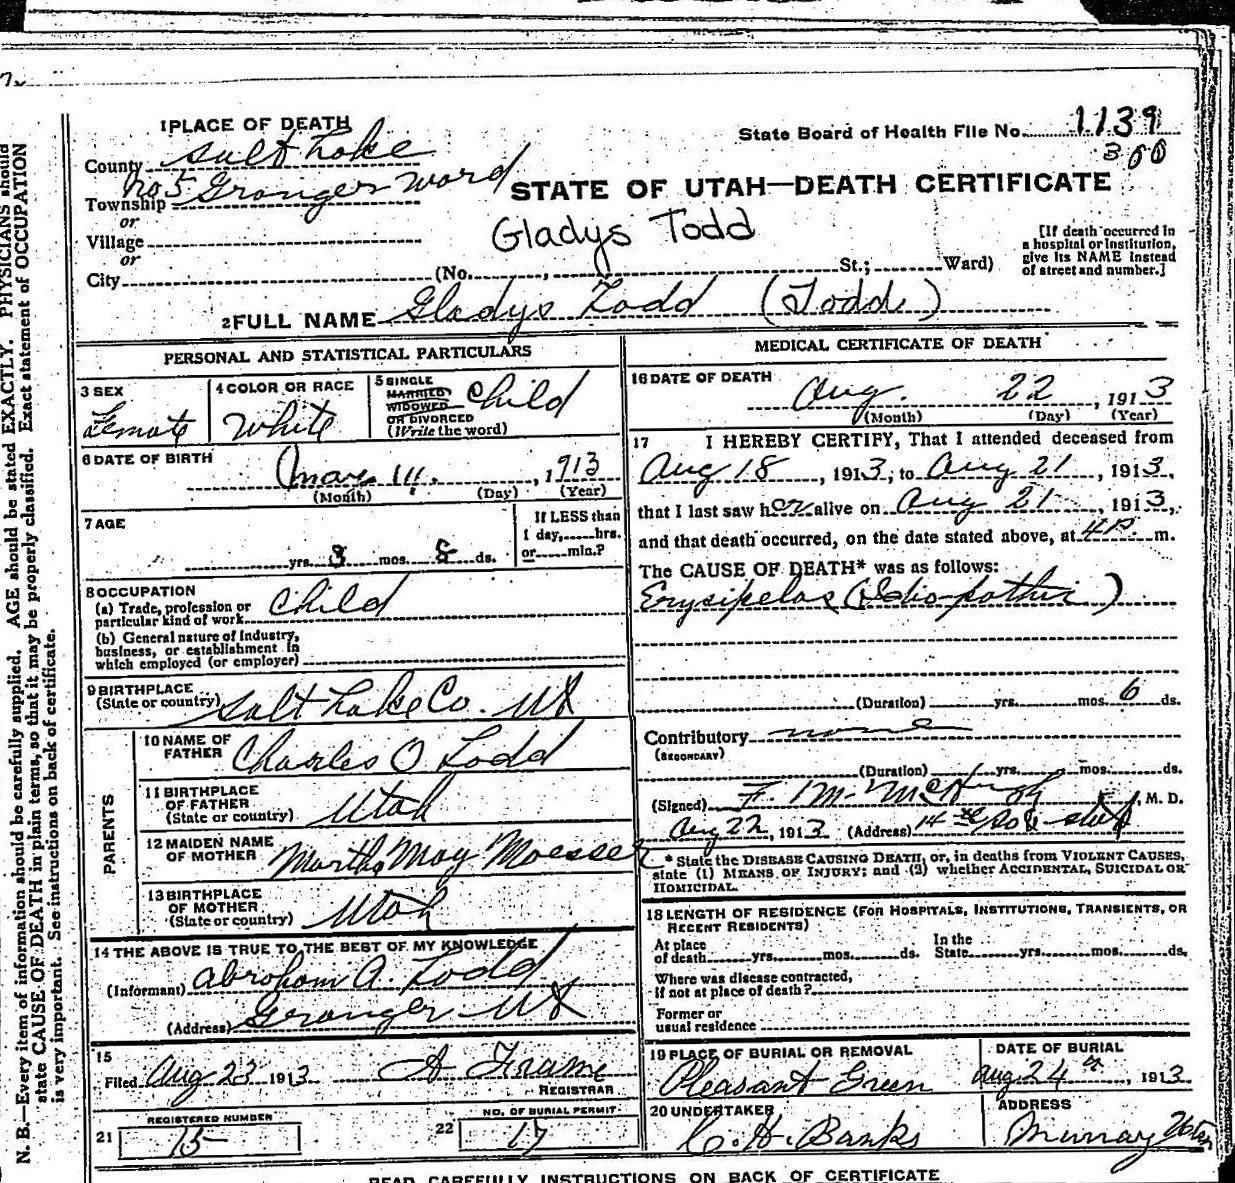 1 PLACE OF DEATH
State Board of Health File No. 1139
300
County Salt Lake
Township No 5 Granger Ward
STATE OF UTAH—DEATH CERTIFICATE
or
Village
Gladys Todd
or
City (No. , St.; Ward)
[If death occurred in
a hospital or institution,
give its NAME instead
of street and number.]
2 FULL NAME Gladys Todd (Todd)
PERSONAL AND STATISTICAL PARTICULARS
3 SEX
Female
4 COLOR OR RACE
White
5 SINGLE
MARRIED
WIDOWED
OR DIVORCED
(Write the word)
Child
6 DATE OF BIRTH
, 1913
(Month) (Day) (Year)
7 AGE
yrs. 3 mos. 8 ds.
If LESS than
1 day, hrs.
or min.?
8 OCCUPATION
(a) Trade, profession or
particular kind of work
Child
(b) General nature of industry,
business, or establishment in
which employed (or employer)
9 BIRTHPLACE
(State or country) Salt Lake Co. Ut
PARENTS
10 NAME OF
FATHER Charles O Todd
11 BIRTHPLACE
OF FATHER
(State or country) Utah
12 MAIDEN NAME
OF MOTHER Martha May Moesser
13 BIRTHPLACE
OF MOTHER
(State or country) Utah
14 THE ABOVE IS TRUE TO THE BEST OF MY KNOWLEDGE
(Informant) Abraham A. Todd
(Address) Granger Ut
15
Filed Aug 23 1913 A Frame
REGISTRAR
REGISTERED NUMBER
21 15
NO. OF BURIAL PERMIT
22 17
MEDICAL CERTIFICATE OF DEATH
16 DATE OF DEATH
Aug. 22, 1913
(Month) (Day) (Year)
17 I HEREBY CERTIFY, That I attended deceased from
Aug 18, 1913, to Aug 21, 1913,
that I last saw her alive on Aug 21, 1913,
and that death occurred, on the date stated above, at 4 P m.
The CAUSE OF DEATH* was as follows:
Erysipelas (Idiopathic)
(Duration) yrs. mos. 6 ds.
Contributory none
(SECONDARY)
(Duration) yrs. mos. ds.
(Signed) F. M. McHugh, M. D.
Aug 22, 1913 (Address) 14
* State the DISEASE CAUSING DEATH, or, in deaths from VIOLENT CAUSES,
state (1) MEANS OF INJURY; and (2) whether ACCIDENTAL, SUICIDAL OR
HOMICIDAL.
18 LENGTH OF RESIDENCE (FOR HOSPITALS, INSTITUTIONS, TRANSIENTS, OR
RECENT RESIDENTS)
At place
of death yrs. mos. ds.
In the
State yrs. mos. ds.
Where was disease contracted,
if not at place of death?
Former or
usual residence
19 PLACE OF BURIAL OR REMOVAL
Pleasant Green
DATE OF BURIAL
Aug 24th, 1913
20 UNDERTAKER
C. H. Banks
ADDRESS
Murray Utah
READ CAREFULLY INSTRUCTIONS ON BACK OF CERTIFICATE
N. B.—Every item of information should be carefully supplied. AGE should be stated EXACTLY. PHYSICIANS should
state CAUSE OF DEATH in plain terms, so that it may be properly classified. Exact statement of OCCUPATION
is very important. See instructions on back of certificate.